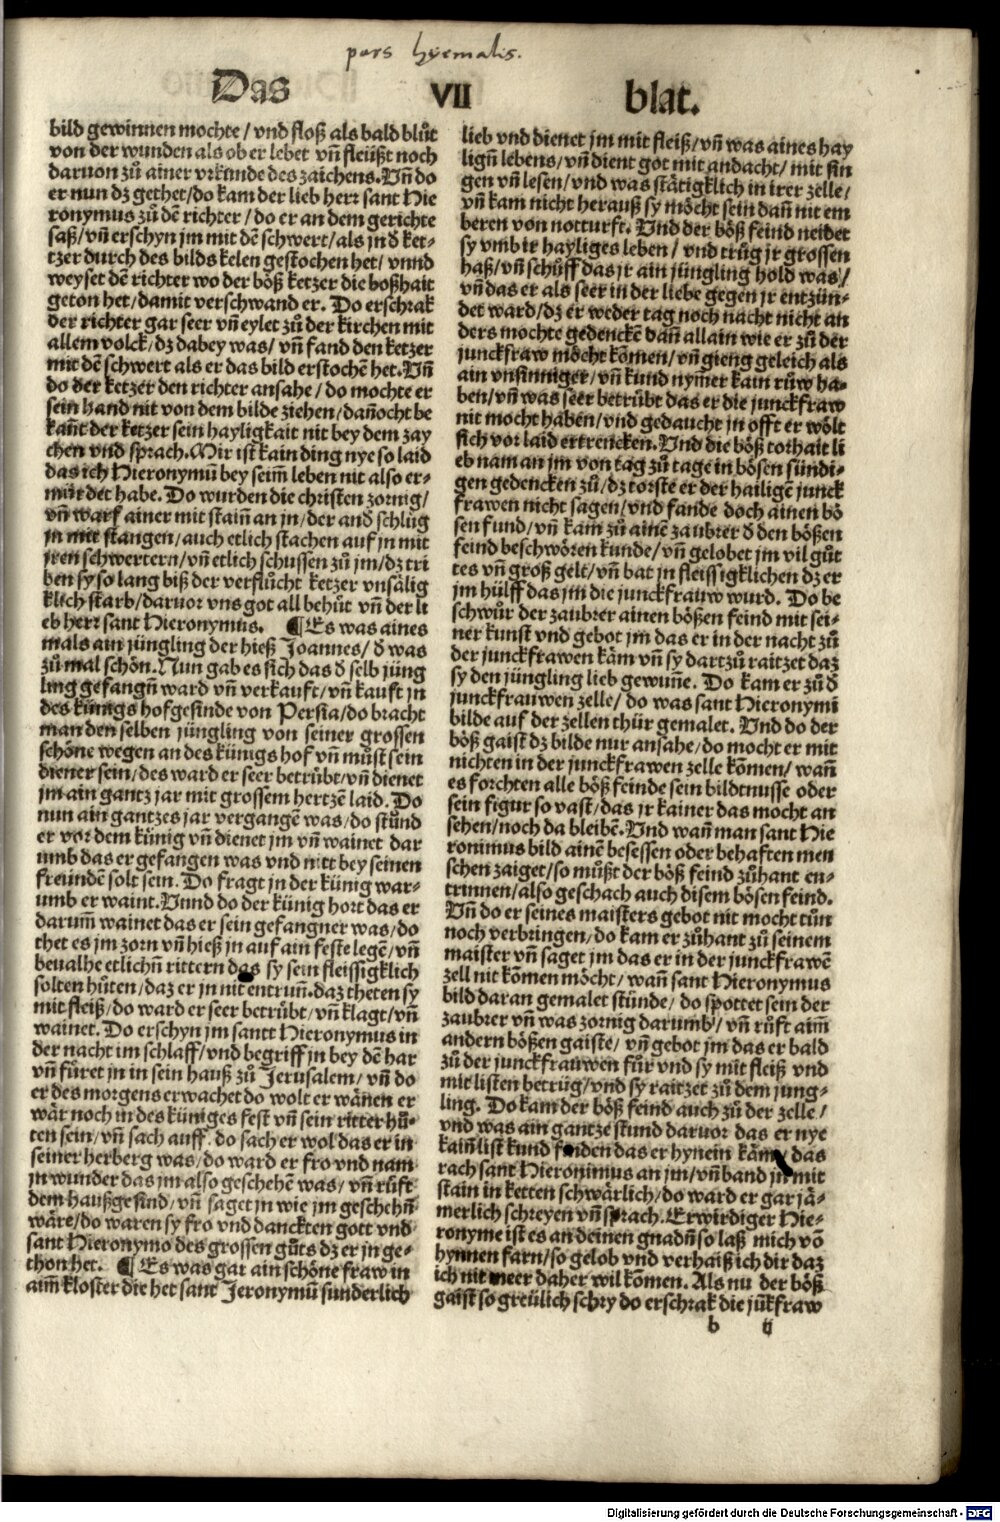 pars hyemalis.
Das VII blat.
bild gewinnen mochte / vnd floß als bald blůt
von der wunden als ob er lebet vn̄ fleüßt noch
daruon zů ainer vrkunde des zaichens. Vn̄ do
er nun dz gethet / do kam der lieb herr sant Hie
ronymus zů dē richter / do er an dem gerichte
saß / vn̄ erschyn jm mit dē schwert / als jn d̄ ket-
tzer durch des bilds kelen gestochen het / vnnd
weyset dē richter wo der böß ketzer die boßhait
geton het / damit verschwand er. Do erschrak
der richter gar seer vn̄ eylet zů der kirchen mit
allem volck / dz dabey was / vn̄ fand den ketzer
mit dē schwert als er das bild erstochē het. Vn̄
do der ketzer den richter ansahe / do mochte er
sein hand nit von dem bilde ziehen / dan̄ocht be
kan̄t der ketzer sein hayligkait nit bey dem zay
chen vnd sprach. Mir ist kain ding nye so laid
das ich Hieronymū bey seim̄ leben nit also er-
mürdet habe. Do wurden die christen zornig /
vn̄ warf ainer mit stain̄ an jn / der and̄ schlůg
jn mit stangen / auch etlich stachen auf jn mit
jren schwertern / vn̄ etlich schussen zů jm / dz tri
ben sy so lang biß der verflůcht ketzer vnsälig
klich starb / daruor vns got all behůt vn̄ der li
eb herr sant Hieronymus. ¶ Es was aines
mals ain jüngling der hieß Joannes / d̄ was
zů mal schön. Nun gab es sich das d̄ selb jüng
ling gefangn̄ ward vn̄ verkauft / vn̄ kauft jn
des künigs hofgesinde von Persia / do bracht
man den selben jüngling von seiner grossen
schöne wegen an des künigs hof vn̄ můst sein
diener sein / des ward er seer betrübt / vn̄ dienet
jm ain gantz jar mit grossem hertzē laid. Do
nun ain gantzes jar vergangē was / do stůnd
er vor dem künig vn̄ dienet jm vn̄ wainet dar
umb das er gefangen was vnd nitt bey seinen
freündē solt sein. Do fragt jn der künig war-
umb er waint. Vnnd do der künig hort das er
darum̄ wainet das er sein gefangner was / do
thet es jm zorn vn̄ hieß jn auf ain feste legē / vn̄
beualhe etlichn̄ rittern das sy sein fleissigklich
solten hůten / daz er jn nit entrun̄. daz theten sy
mit fleiß / do ward er seer betrübt / vn̄ klagt / vn̄
wainet. Do erschyn jm santt Hieronymus in
der nacht im schlaff / vnd begriff jn bey dē har
vn̄ fůret jn in sein hauß zů Jerusalem / vn̄ do
er des morgens erwachet do wolt er wänen er
wär noch in des küniges fest vn̄ sein ritter hů-
ten sein / vn̄ sach auff. do sach er wol das er in
seiner herberg was / do ward er fro vnd nam
jn wunder das jm also geschehē was / vn̄ růft
dem haußgesind / vn̄ saget jn wie jm geschehn̄
wäre / do waren sy fro vnd danckten gott vnd
sant Hieronymo des grossen gůts dz er jn ge-
thon het. ¶ Es was gar ain schöne fraw in
aim̄ kloster die het sant Jeronymū sunderlich
lieb vnd dienet jm mit fleiß / vn̄ was aines hay
lign̄ lebens / vn̄ dient got mit andacht / mit sin
gen vn̄ lesen / vnd was stätigklich in irer zelle /
vn̄ kam nicht herauß sy möcht sein dan̄ nit em
beren von notturft. Vnd der böß feind neidet
sy vmb ir hayliges leben / vnd trůg jr grossen
haß / vn̄ schůff das jr ain jüngling hold was /
vn̄ das er als seer in der liebe gegen jr entzün-
det ward / dz er weder tag noch nacht nicht an
ders mochte gedenckē dan̄ allain wie er zů der
junckfraw möcht kōmen / vn̄ gieng geleich als
ain vnsinniger / vn̄ kund nym̄er kain růw ha-
ben / vn̄ was seer betrübt das er die junckfraw
nit mocht haben / vnd gedaucht jn offt er wölt
sich vor laid ertrencken. Vnd die böß tothait li
eb nam an jm von tag zů tage in bösen sündi-
gen gedencken zů / dz torste er der hailigē junck
frawen nicht sagen / vnd fande doch ainen bö
sen fund / vn̄ kam zů ainē zaubrer d̄ den bößen
feind beschwören kunde / vn̄ gelobet jm vil gůt
tes vn̄ groß gelt / vn̄ bat jn fleissigklichen dz er
jm hülff das jm die junckfrauw wurd. Do be
schwůr der zaubrer ainen bößen feind mit sei-
ner kunst vnd gebot jm das er in der nacht zů
der junckfrawen käm vn̄ sy dartzů raitzet daz
sy den jüngling lieb gewun̄e. Do kam er zů d̄
junckfrauwen zelle / do was sant Hieronymi
bilde auf der zellen thür gemalet. Vnd do der
böß gaist dz bilde nur ansahe / do mocht er mit
nichten in der junckfrawen zelle kōmen / wan̄
es forchten alle böß feinde sein bildtnusse oder
sein figur so vast / das jr kainer das mocht an
sehen / noch da bleibē. Vnd wan̄ man sant Hie
ronimus bild ainē besessen oder behaften men
schen zaiget / so můßt der böß feind zůhant en-
trinnen / also geschach auch disem bösen feind.
Vn̄ do er seines maisters gebot nit mocht tůn
noch verbringen / do kam er zůhant zů seinem
maister vn̄ saget jm das er in der junckfrawē
zell nit kōmen möcht / wan̄ sant Hieronymus
bild daran gemalet stünde / do spottet sein der
zaubrer vn̄ was zornig darumb / vn̄ růft aim̄
andern bößen gaiste / vn̄ gebot jm das er bald
zů der junckfrauwen fůr vnd sy mit fleiß vnd
mit listen betrüg / vnd sy raitzet zů dem jung-
ling. Do kam der böß feind auch zů der zelle /
vnd was ain gantze stund daruor das er nye
kain̄ list kund finden das er hynein käm / das
rach sant Hieronimus an jm / vn̄ band jn mit
stain in ketten schwärlich / do ward er gar jä-
merlich schreyen vn̄ sprach. Erwirdiger Hie-
ronyme ist es an deinen gnadn̄ so laß mich vō
hynnen farn / so gelob vnd verhaiß ich dir daz
ich nit meer daher wil kōmen. Als nu der böß
gaist so greülich schry do erschrak die jūckfraw
b ij
Digitalisierung gefördert durch die Deutsche Forschungsgemeinschaft - DFG